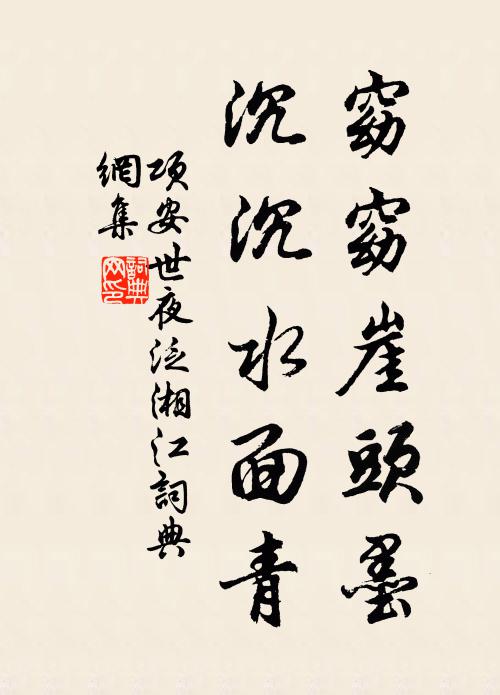 窈窈崖頭墨
沉沉水面青
項安世夜泛湘江詞典
網集
詞典網印